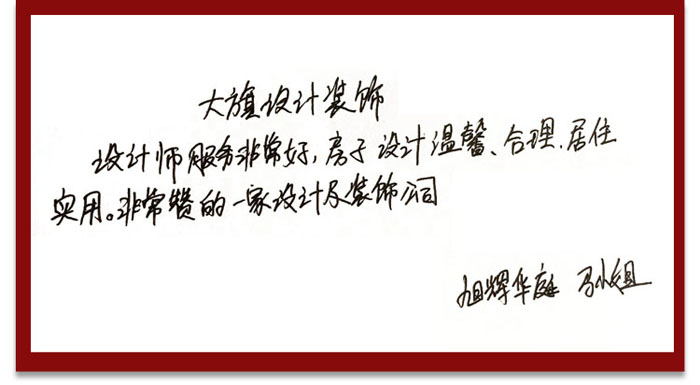 大旗设计装饰
设计师服务非常好,房子设计温馨、合理.居住
实用。非常赞的一家设计及装饰公司
旭辉华庭 小姐